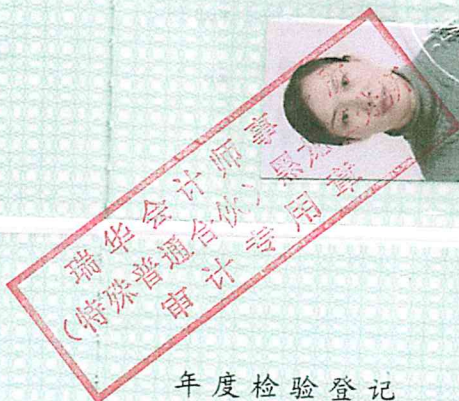 瑞华会计师事
(特殊普通合伙)
审计专用章
年度检验登记